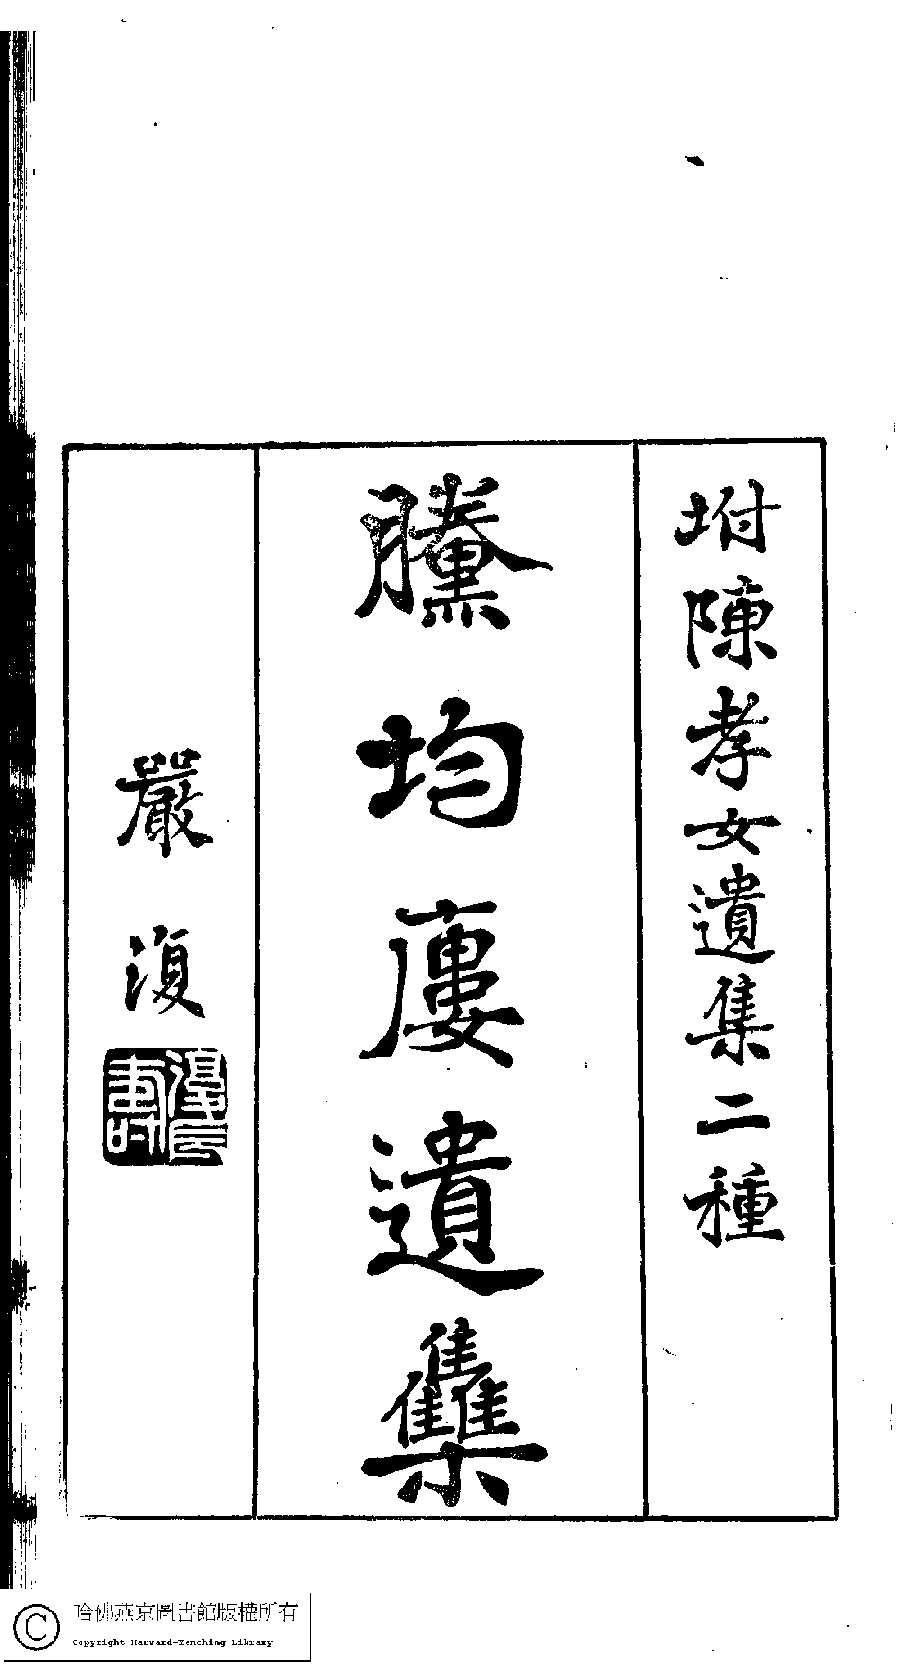 坿陳孝女遺集二種
黱均廔遺雧
嚴復
哈佛燕京圖書館版權所有
Copyright Harvard-Yenching Library